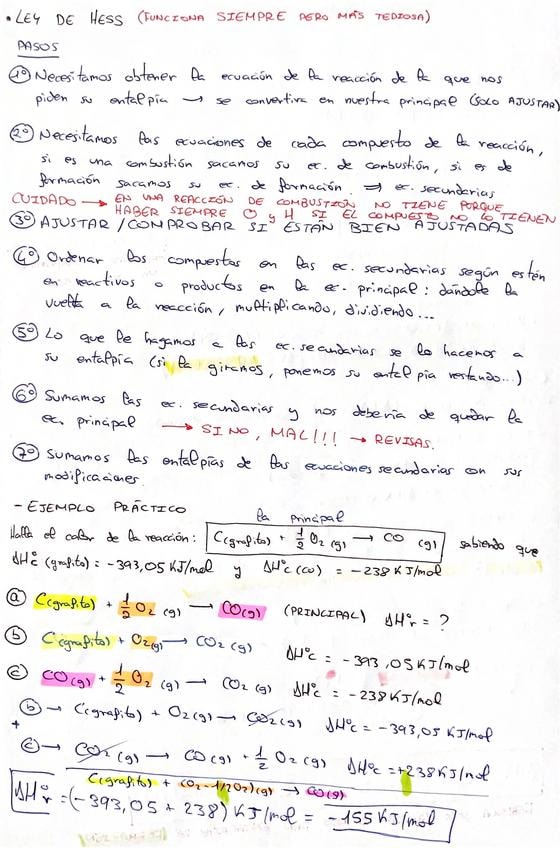 • LEY DE HESS (FUNCIONA SIEMPRE PERO MÁS TEDIOSA)
PASOS
1º Necesitamos obtener la ecuación de la reacción de la que nos
piden su entalpía → se convertira en nuestra principal (SOLO AJUSTAR)
2º Necesitamos las ecuaciones de cada compuesto de la reacción,
si es una combustión sacamos su ec. de combustión, si es de
formación sacamos su ec. de formación. ⇒ ec. secundarias
CUIDADO → EN UNA REACCIÓN DE COMBUSTION NO TIENE PORQUE
HABER SIEMPRE O y H SI EL COMPUESTO NO LO TIENEN
3º AJUSTAR / COMPROBAR SI ESTÁN BIEN AJUSTADAS
4º Ordenar los compuestos en las ec. secundarias según estén
en reactivos o productos en la ec. principal: dándole la
vuelta a la reacción, multiplicando, dividiendo...
5º Lo que le hagamos a las ec. secundarias se lo hacemos a
su entalpía (si la giramos, ponemos su entalpía restando...)
6º Sumamos las ec. secundarias y nos debería de quedar la
ec. principal → SI NO, MAL!!! → REVISAS.
7º Sumamos las entalpías de las ecuaciones secundarias con sus
modificaciones.
- EJEMPLO PRÁCTICO
la principal
Halla el calor de la reacción: C(grafito) + 1/2 O2 (g) → CO (g) sabiendo que
ΔHºc (grafito) = -393,05 KJ/mol y ΔHºc (CO) = -238 KJ/mol
a C(grafito) + 1/2 O2 (g) → CO(g) (PRINCIPAL) ΔHºr = ?
b C(grafito) + O2(g) → CO2 (g) ΔHºc = -393,05 KJ/mol
c CO(g) + 1/2 O2 (g) → CO2 (g) ΔHºc = -238 KJ/mol
b → C(grafito) + O2(g) → CO2(g) ΔHºc = -393,05 KJ/mol
+
c → CO2(g) → CO(g) + 1/2 O2 (g) ΔHºc = +238 KJ/mol
C(grafito) + (O2 - 1/2O2)(g) → CO(g)
ΔHºr = (-393,05 + 238) KJ/mol = -155 KJ/mol